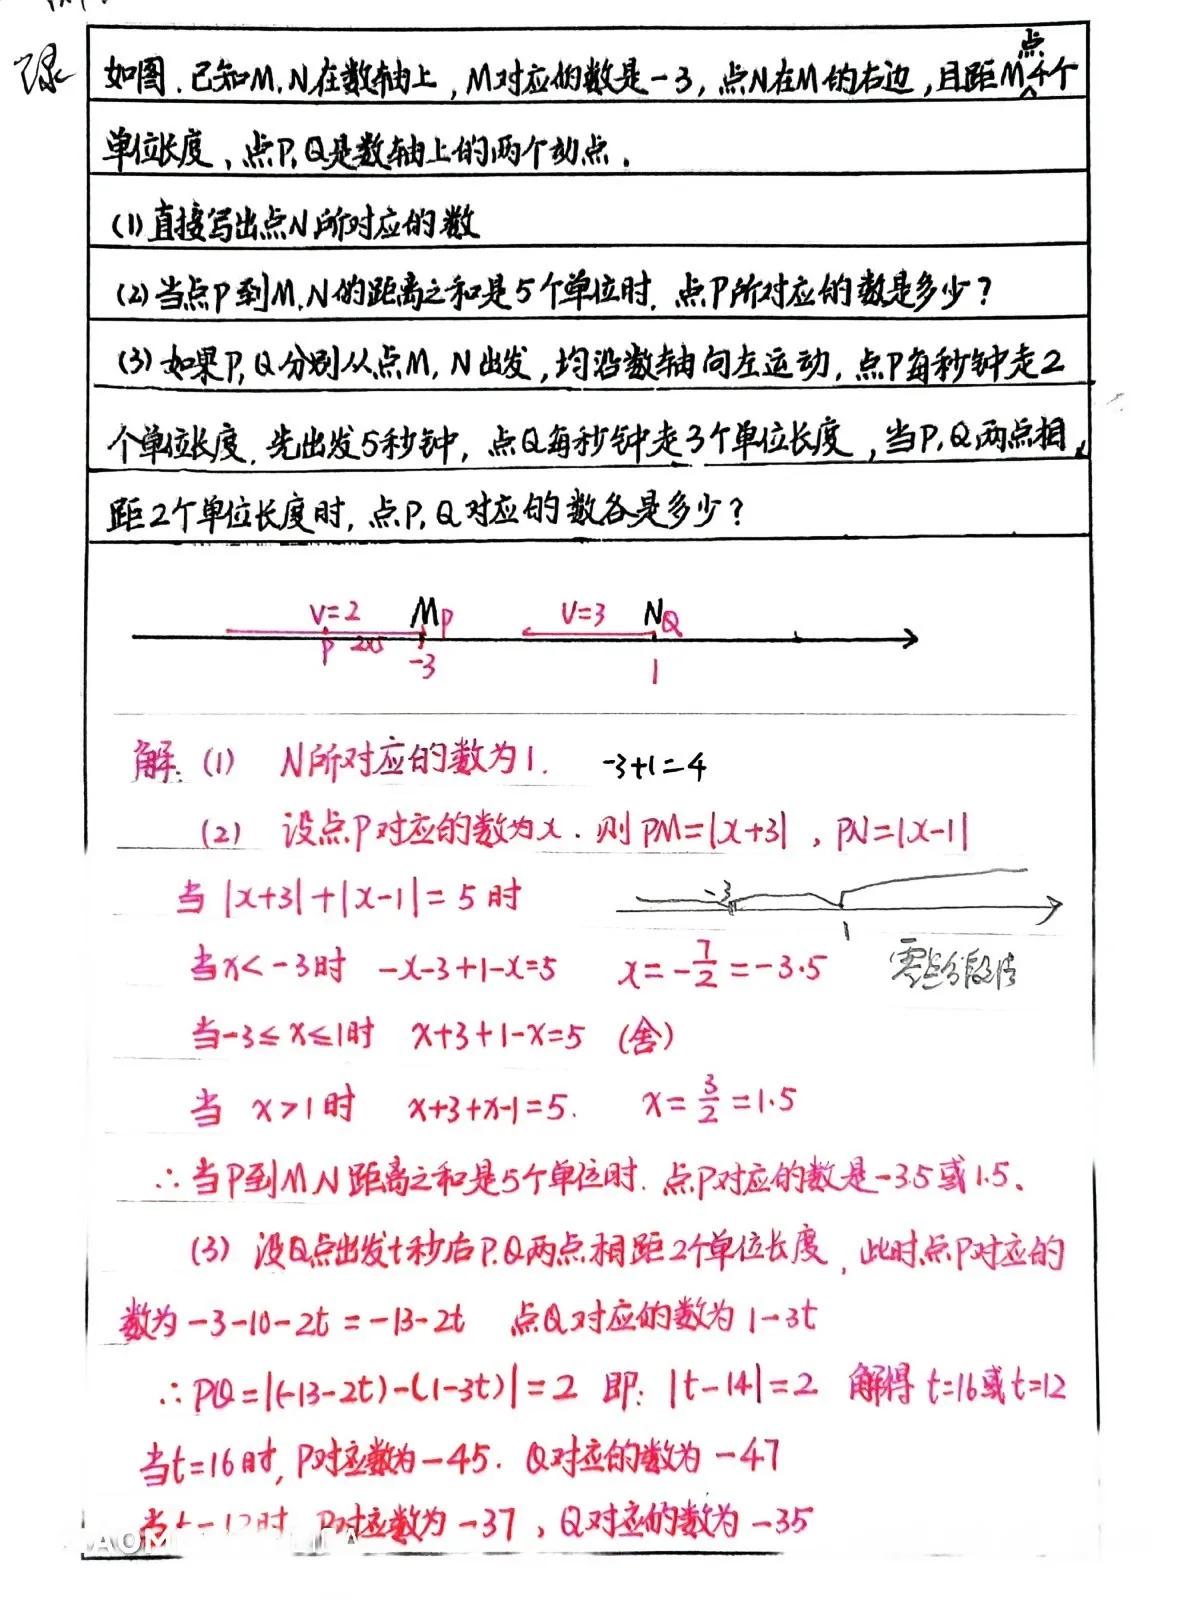 如图.已知M,N在数轴上,M对应的数是-3,点N在M的右边,且距M点4个
单位长度,点P,Q是数轴上的两个动点.
(1)直接写出点N所对应的数
(2)当点P到M,N的距离之和是5个单位时.点P所对应的数是多少?
(3)如果P,Q分别从点M,N出发,均沿数轴向左运动,点P每秒钟走2
个单位长度.先出发5秒钟,点Q每秒钟走3个单位长度,当P,Q两点相
距2个单位长度时,点P,Q对应的数各是多少?
V=2 M P V=3 N Q
P 2x5 -3 1
解:(1) N所对应的数为1. -3+1=4
(2) 设点P对应的数为x.则PM=|x+3|,PN=|x-1|
当|x+3|+|x-1|=5时 -3 1
当x<-3时 -x-3+1-x=5 x=-7/2=-3.5 零点分段法
当-3≤x≤1时 x+3+1-x=5 (舍)
当 x>1时 x+3+x-1=5. x=3/2=1.5
∴当P到M,N距离之和是5个单位时.点P对应的数是-3.5或1.5.
(3) 设Q点出发t秒后P.Q两点相距2个单位长度,此时点P对应的
数为-3-10-2t=-13-2t 点Q对应的数为1-3t
∴PQ=|(-13-2t)-(1-3t)|=2 即:|t-14|=2 解得t=16或t=12
当t=16时,P对应数为-45.Q对应的数为-47
当t=12时 P对应数为-37,Q对应的数为-35